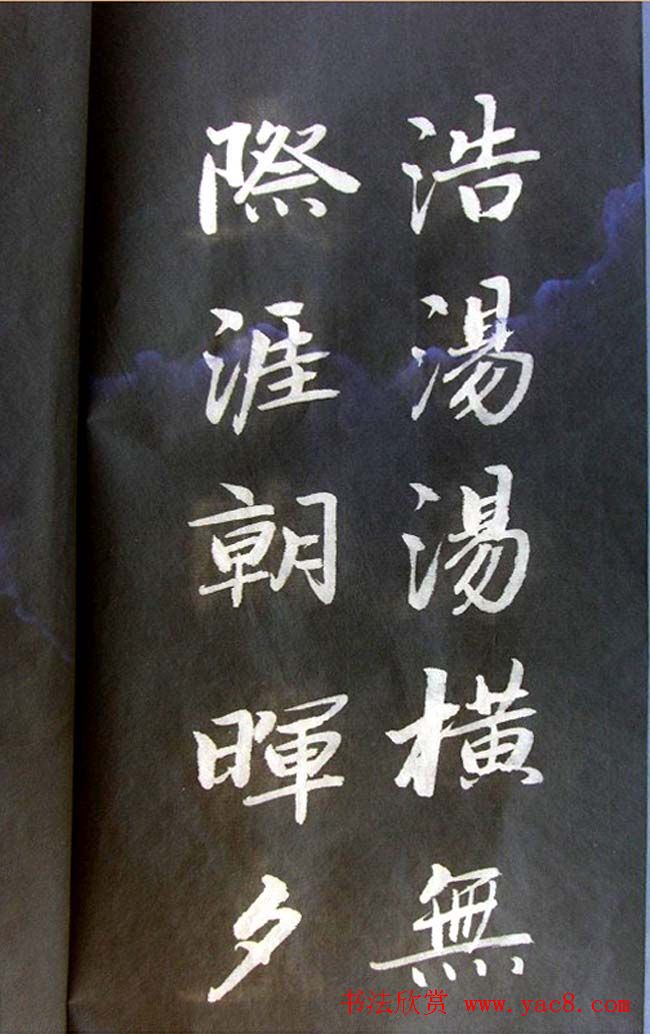 浩湯湯橫無
際涯朝暉夕
书法欣赏 www.yac8.com